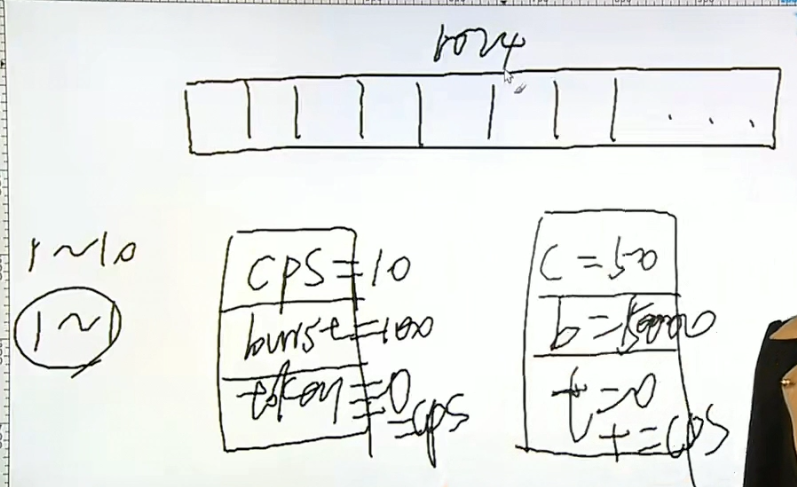 1024
. . .
1~10
1~1
cps=10
burst=100
token=0
+=cps
c=50
t=0
+=cps